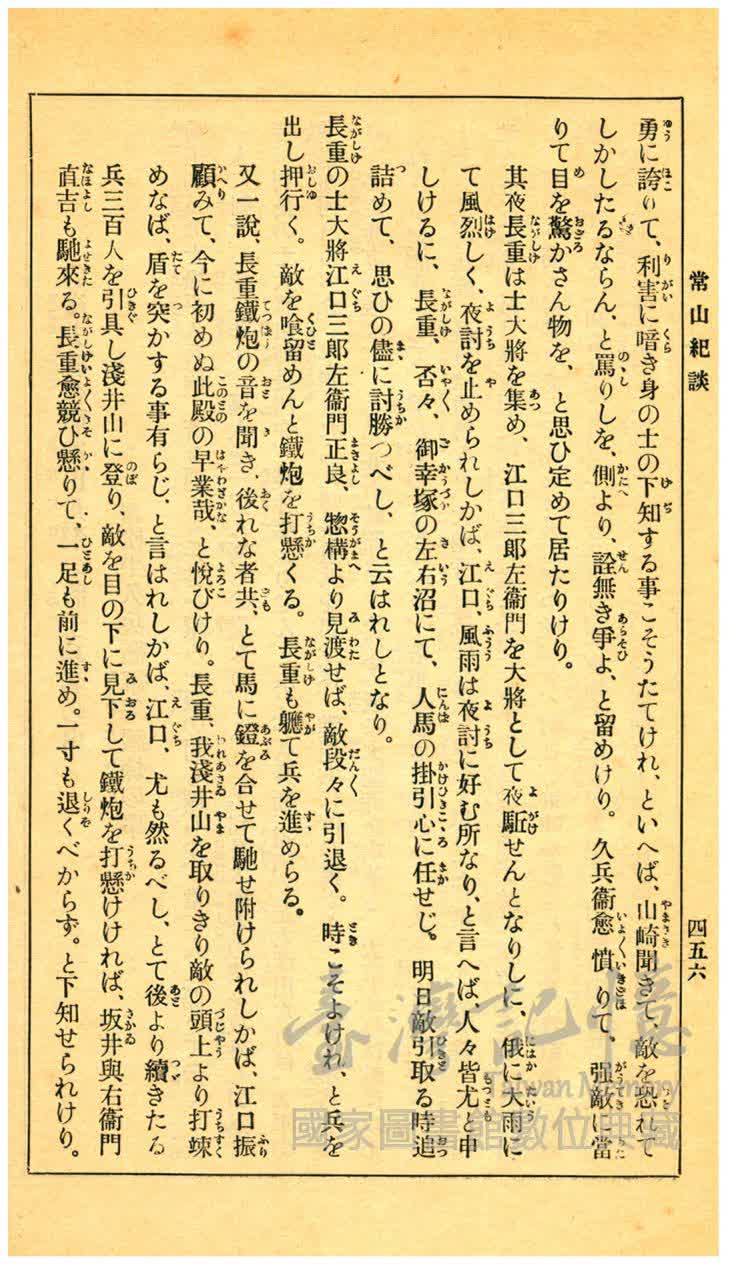 常山紀談
四五六
勇に誇りて、利害に暗き身の士の下知する事こそうたてけれ、といへば、山崎聞きて、敵を恐れて
しかしたるならん、と罵りしを、側より、詮無き爭よ、と留めけり。久兵衞愈憤りて、强敵に當
りて目を驚かさん物を、と思ひ定めて居たりけり。
其夜長重は士大將を集め、江口三郎左衞門を大將として夜駈せんとなりしに、俄に大雨に
て風烈しく、夜討を止められしかば、江口、風雨は夜討に好む所なり、と言へば、人々皆尤と申
しけるに、長重、否々、御幸塚の左右沼にて、人馬の掛引心に任せじ。明日敵引取る時追
詰めて、思ひの儘に討勝つべし、と云はれしとなり。
長重の士大將江口三郎左衞門正良、惣構より見渡せば、敵段々に引退く。時こそよけれ、と兵を
出し押行く。敵を喰留めんと鐵炮を打懸くる。長重も軈て兵を進めらる。
又一說、長重鐵炮の音を聞き、後れな者共、とて馬に鐙を合せて馳せ附けられしかば、江口振
顧みて、今に初めぬ此殿の早業哉、と悅びけり。長重、我淺井山を取りきり敵の頭上より打竦
めなば、盾を突かする事有らじ、と言はれしかば、江口、尤も然るべし、とて後より續きたる
兵三百人を引具し淺井山に登り、敵を目の下に見下して鐵炮を打懸けければ、坂井與右衞門
直吉も馳來る。長重愈競ひ懸りて、一足も前に進め。一寸も退くべからず。と下知せられけり。
臺灣記憶
Taiwan Memory
國家圖書館數位典藏